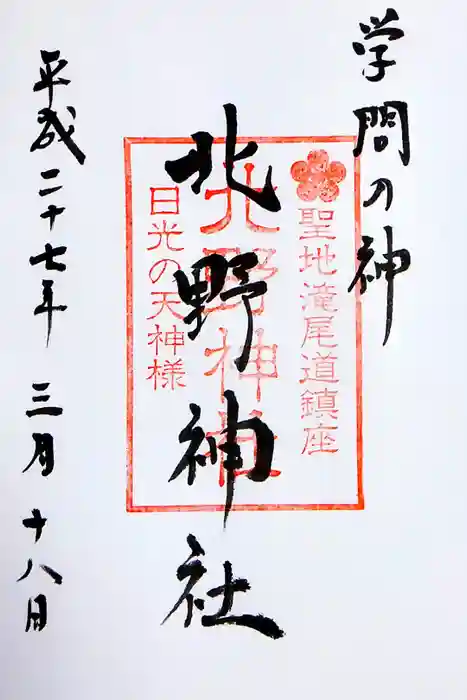 学問の神
聖地滝尾道鎮座
北野神社
北野神社
日光の天神様
平成二十七年三月十八日